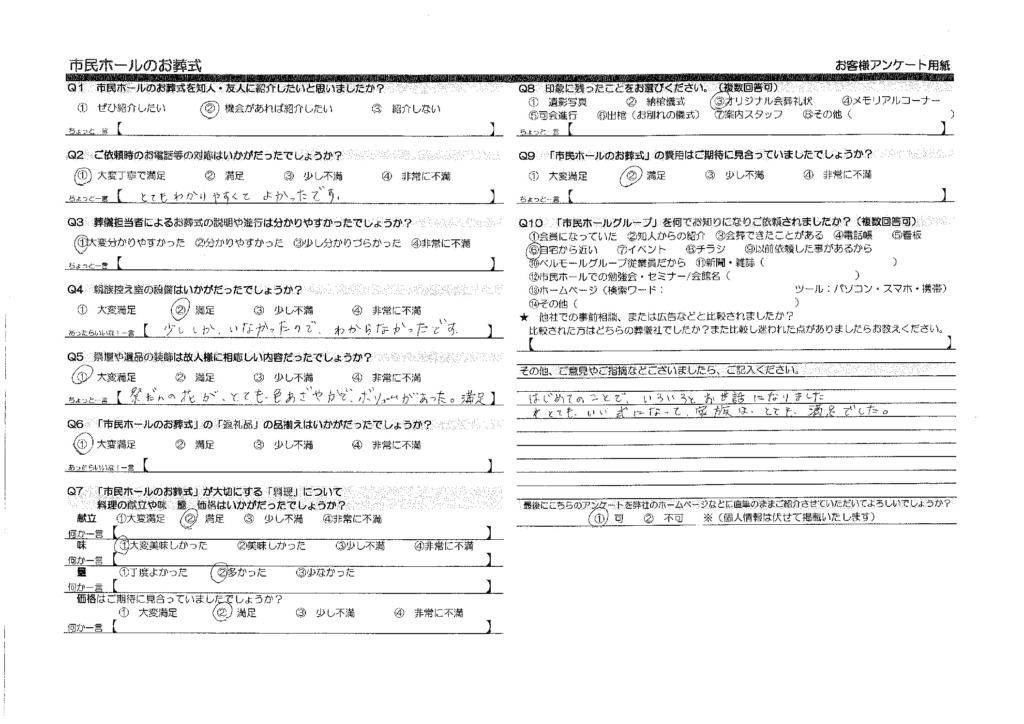 市民ホールのお葬式
お客様アンケート用紙
Q1 市民ホールのお葬式を知人・友人に紹介したいと思いましたか？
① ぜひ紹介したい ② 機会があれば紹介したい ③ 紹介しない
ちょっと一言【 】
Q2 ご依頼時のお電話等の対応はいかがだったでしょうか？
① 大変丁寧で満足 ② 満足 ③ 少し不満 ④ 非常に不満
ちょっと一言【 とてもわかりやすくて よかったです。 】
Q3 葬儀担当者によるお葬式の説明や進行は分かりやすかったでしょうか？
①大変分かりやすかった ②分かりやすかった ③少し分かりづらかった ④非常に不満
ちょっと一言【 】
Q4 親族控え室の設備はいかがだったでしょうか？
① 大変満足 ② 満足 ③ 少し不満 ④ 非常に不満
あったらいいな！一言【 少ししか、いなかったので、わからなかったです。 】
Q5 祭壇や遺品の装飾は故人様に相応しい内容だったでしょうか？
① 大変満足 ② 満足 ③ 少し不満 ④ 非常に不満
ちょっと一言【 祭だんの花が、とても色あざやかで、ボリュームがあった。満足 】
Q6 「市民ホールのお葬式」の「返礼品」の品揃えはいかがだったでしょうか？
① 大変満足 ② 満足 ③ 少し不満 ④ 非常に不満
あったらいいな！一言【 】
Q7 「市民ホールのお葬式」が大切にする「料理」について
料理の献立や味 量 価格はいかがだったでしょうか？
献立 ①大変満足 ② 満足 ③ 少し不満 ④非常に不満
何か一言【 】
味 ①大変美味しかった ②美味しかった ③少し不満 ④非常に不満
何か一言【 】
量 ①丁度よかった ②多かった ③少なかった
何か一言【 】
価格はご期待に見合っていましたでしょうか？
① 大変満足 ② 満足 ③ 少し不満 ④ 非常に不満
何か一言【 】
Q8 印象に残ったことをお選びください。（複数回答可）
① 遺影写真 ② 納棺儀式 ③オリジナル会葬礼状 ④メモリアルコーナー
⑤司会進行 ⑥出棺（お別れの儀式） ⑦案内スタッフ ⑧その他（ ）
ちょっと一言【 】
Q9 「市民ホールのお葬式」の費用はご期待に見合っていましたでしょうか？
① 大変満足 ② 満足 ③ 少し不満 ④ 非常に不満
ちょっと一言【 】
Q10 「市民ホールグループ」を何でお知りになりご依頼されましたか？（複数回答可）
①会員になっていた ②知人からの紹介 ③会葬できたことがある ④電話帳 ⑤看板
⑥自宅から近い ⑦イベント ⑧チラシ ⑨以前依頼した事があるから
⑩ベルモールグループ従業員だから ⑪新聞・雑誌（ ）
⑫市民ホールでの勉強会・セミナー/会館名（ ）
⑬ホームページ（検索ワード： ツール：パソコン・スマホ・携帯）
⑭その他（ ）
★ 他社での事前相談、または広告などと比較されましたか？
比較された方はどちらの葬儀社でしたか？また比較し迷われた点がありましたらお教えください。
【 】
その他、ご意見やご指摘などございましたら、ご記入ください。
はじめてのことで、いろいろとお世話になりました
とても、いい式になって、家族は、とても、満足でした。
最後にこちらのアンケートを弊社のホームページなどに直筆のままご紹介させていただいてよろしいでしょうか？
① 可 ② 不可 ※（個人情報は伏せて掲載いたします）